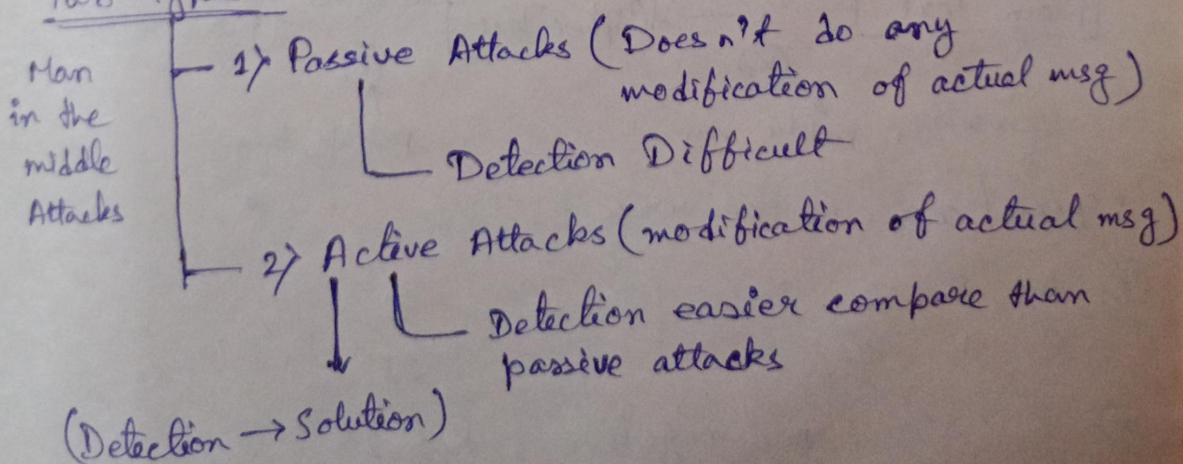 Man
in the
middle
Attacks
1) Passive Attacks (Does n't do any
modification of actual msg)
Detection Difficult
2) Active Attacks (modification of actual msg)
Detection easier compare than
passive attacks
(Detection → Solution)